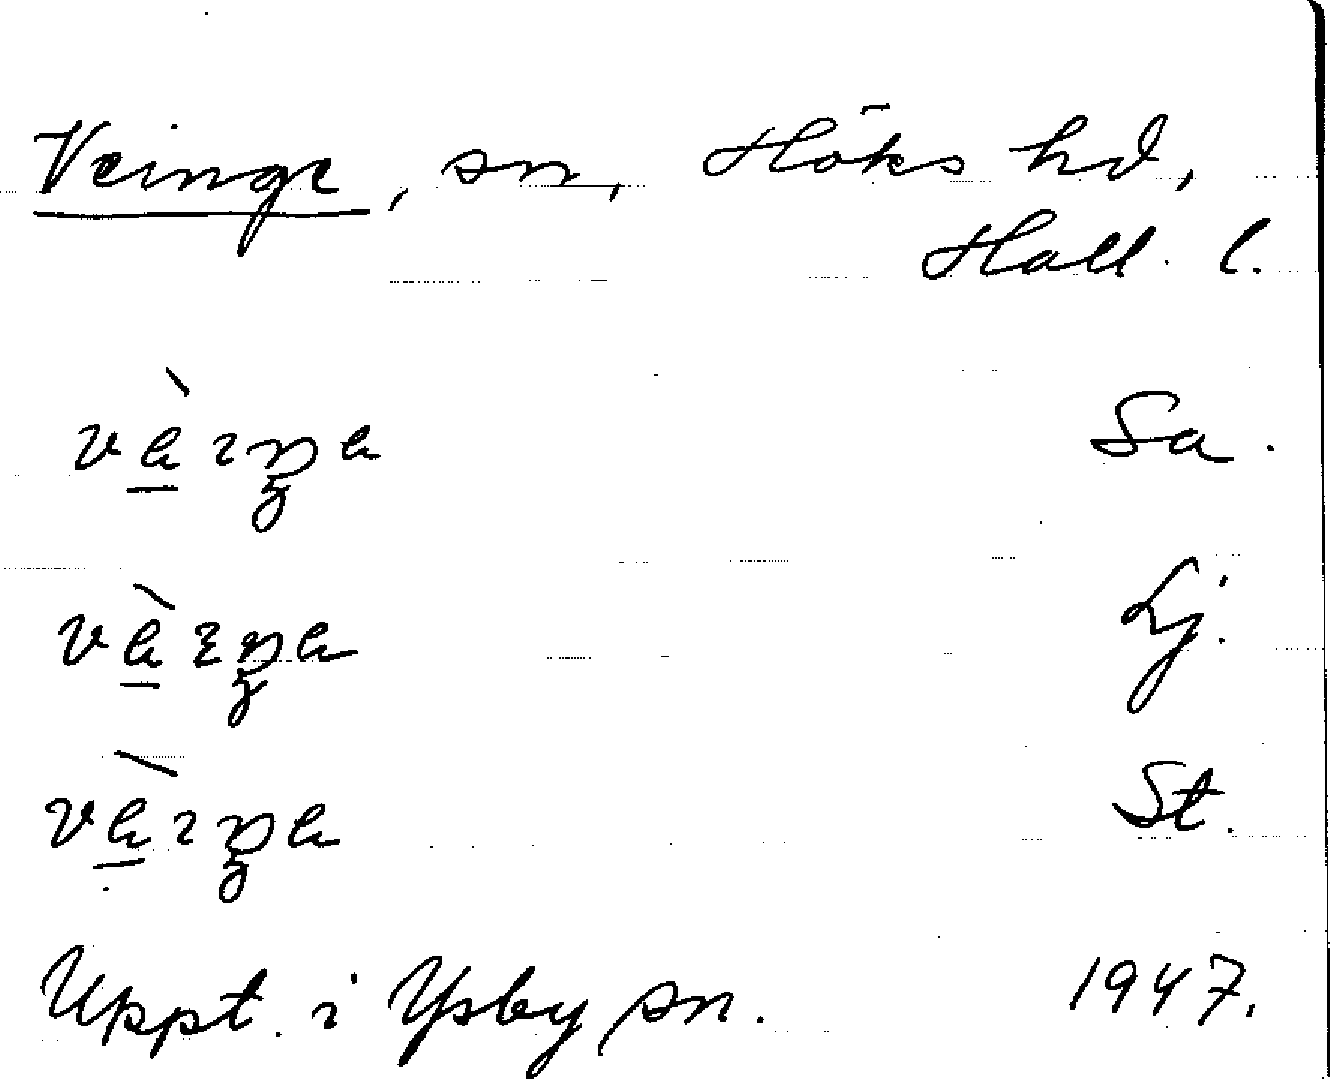 Veinge, sn, Höks hd,
Hall. l.
Sa.
Lj.
St.
Uppt. i Ysby sn. 1947.